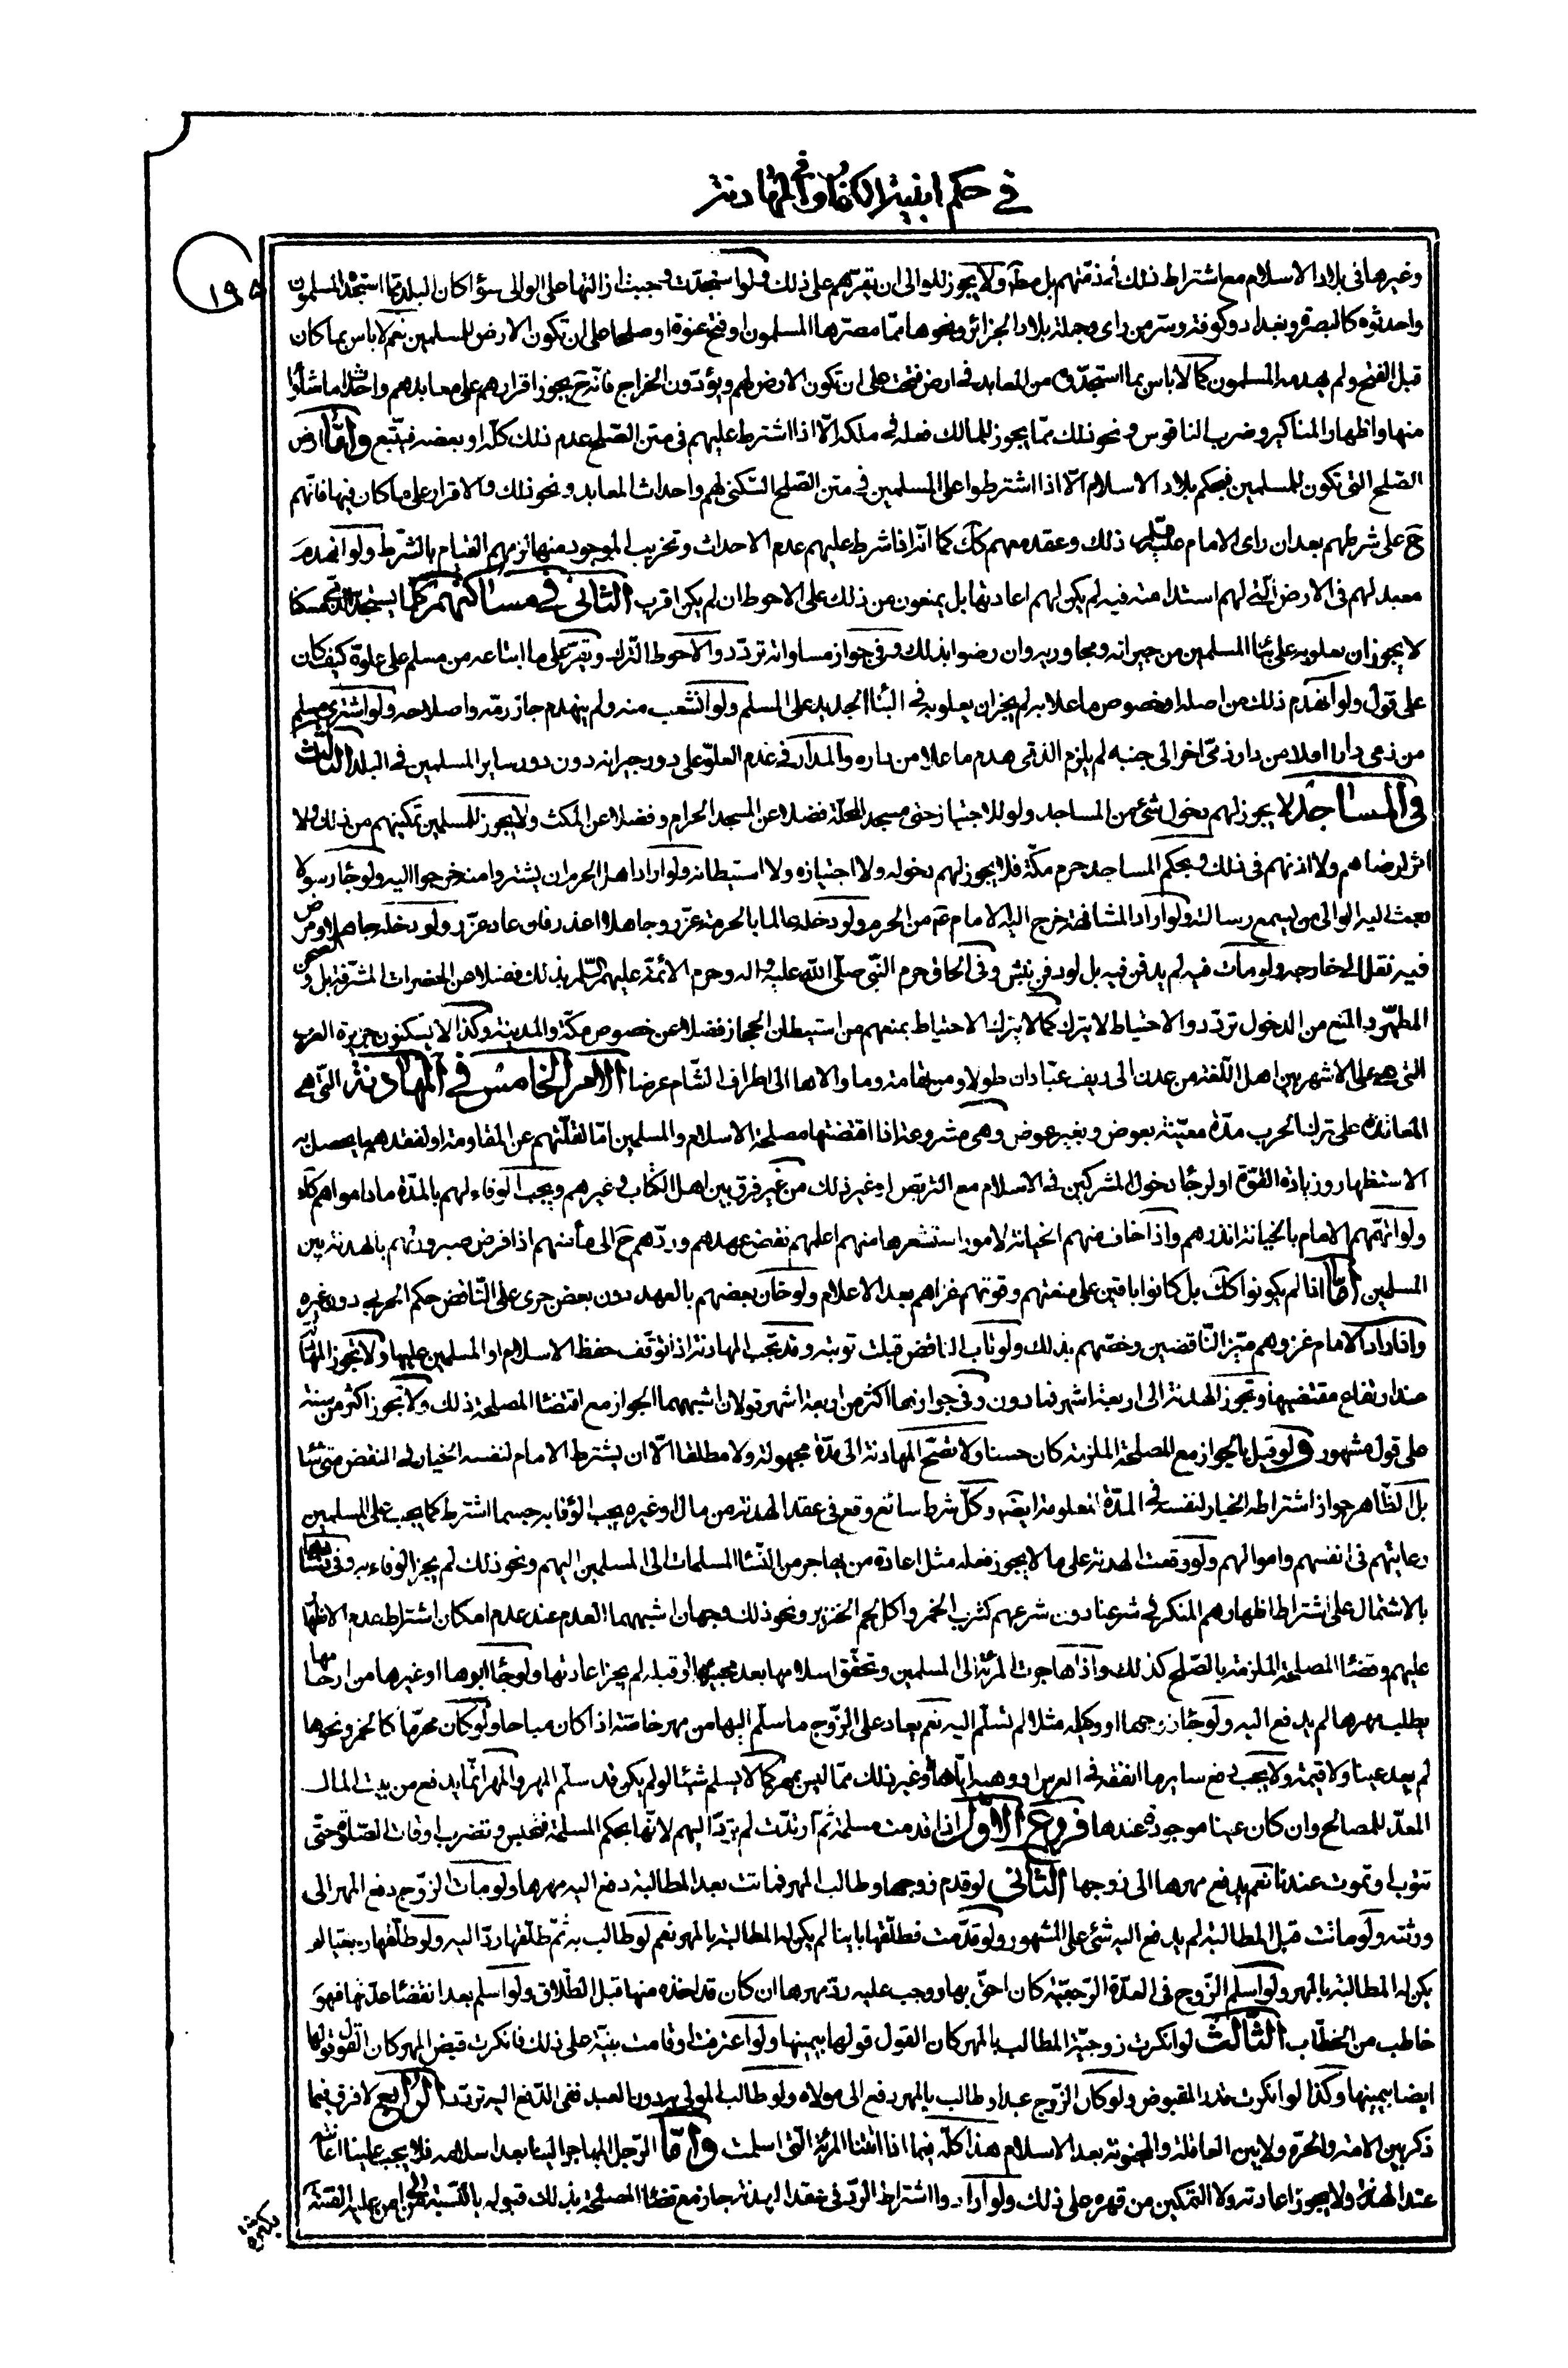 في حكم ابنية الكفار وفي المهادنة
١٩٥
وغيرها في بلاد الاسلام مع اشتراط ذلك في ذمتهم بل مطلقا ولا يجوز للوالى ان يقرهم على ذلك ولو استجدت وجبت ازالتها على الوالى سواء كان البلد مما استجده المسلمون
واحدثوه كالبصرة وبغداد وكوفة وسر من راى وجملة بلاد الجزائر ونحوها مما مصرها المسلمون او فتح عنوة او صلحا على ان تكون الارض للمسلمين نعم لا باس بما كان
قبل الفتح ولم يهدمه المسلمون كما لا باس بما استجدوه من المعابد في ارض فتحت على ان تكون الارض لهم ويؤدون الخراج فانه ح يجوز اقرارهم على معابدهم واحداث ما شاؤا
منها واظهار المناكير وضرب الناقوس ونحو ذلك مما يجوز للمالك فعله في ملكه الا اذا اشترط عليهم في متن الصلح عدم ذلك كله او بعضه فيتبع واما ارض
الصلح التى تكون للمسلمين فبحكم بلاد الاسلام الا اذا اشترطوا على المسلمين في متن الصلح السكنى لهم واحداث المعابد ونحو ذلك والاقرار على ما كان فيها فانهم
ح على شرطهم بعد ان راى الامام ذلك وعقد معهم كك كما انه اذا شرط عليهم عدم الاحداث وتخريب الموجود منها لزمهم القيام بالشرط ولو انهدم
معبد لهم في الارض التى لهم استدامته فيه لم يكن لهم اعادتها بل يمنعون من ذلك على الاحوط ان لم يكن اقرب الثانى في مساكنهم كلما يستجده الذمى مسكنا
لا يجوز ان يعلو به على بناء المسلمين من جيرانه ومجاوريه وان رضوا بذلك وفي جواز مساواته تردد والاحوط الترك ويقر على ما ابتاعه من مسلم على علوه كيف كان
على قول ولو انهدم ذلك من اصله او خصوص ما علا به لم يجز ان يعلو به في البناء الجديد على المسلم ولو انشعب منه ولم ينهدم جاز رمه واصلاحه ولو اشترى مسلم
من ذمى دارا اعلا من دار ذمى اخر الى جنبه لم يلزم الذمى هدم ما علا من داره والمدار في عدم العلو على دور جيرانه دون دور ساير المسلمين في البلد الثالث
في المساجد لا يجوز لهم دخول شئ من المساجد ولو للاجتياز حتى مسجد المحلة فضلا عن المسجد الحرام وفضلا عن المكث ولا يجوز للمسلمين تمكينهم من ذلك ولا
اثر لرضاهم ولا اذنهم في ذلك وبحكم المساجد حرم مكة فلا يجوز لهم دخوله ولا اجتيازه ولا استيطانه ولو اراد اهل الحرم ان يشتروا منه خرجوا اليه ولو جاء رسولا
بعث اليه الوالى من يسمع رسالته ولو اراد المشافهة خرج اليه الامام ع من الحرم ولو دخله عالما بالحرمة عزر وجاهلا اعذر فان عاد عزر ولو دخله جاهلا ومرض
فيه نقل الى خارجه ولو مات فيه لم يدفن فيه بل لو دفن نبش وفى الحاق حرم النبى صلى الله عليه واله وحرم الائمة عليهم السلم بذلك فضلا عن الحضرات المشرفة بل والصحن
المطهر والمنع من الدخول تردد والاحتياط لا يترك كما لا يترك الاحتياط بمنعهم من استيطان الحجاز فضلا عن خصوص مكة والمدينة وكذا لا يسكنون جزيرة العرب
التى هى على الاشهر بين اهل اللغة من عدن الى ريف عبادان طولا ومن تهامة وما والاها الى اطراف الشام عرضا الامر الخامس في المهادنة التى هى
المعاقدة على ترك الحرب مدة معينة بعوض وبغير عوض وهى مشروعة اذا اقتضتها مصلحة الاسلام والمسلمين اما لقلتهم عن المقاومة او لفقدهم ما يحصل به
الاستظهار وزيادة القوة او لرجاء دخول المشركين في الاسلام مع التربص او غير ذلك من غير فرق بين اهل الكتاب وغيرهم ويجب الوفاء لهم بالمدة ما داموا هم كك
ولو اتهمهم الامام بالخيانة انذرهم واذا خاف منهم الخيانة لامور استشعرها منهم اعلمهم نقض عهدهم وردهم ح الى مأمنهم اذا فرض صيرورتهم بالهدنة بين
المسلمين اما اذا لم يكونوا كك بل كانوا باقين على منعتهم وقوتهم غزاهم بعد الاعلام ولو خان بعضهم بالعهد دون بعض جرى على الناقض حكم الحربى دون غيره
واذا اراد الامام غزوهم ميز الناقضين وخصهم بذلك ولو تاب الناقض قبلت توبته وقد تجب المهادنة اذا توقف حفظ الاسلام او المسلمين عليها ولا تجوز المهادنة
عند ارتفاع مقتضيها وتجوز الهدنة الى اربعة اشهر فما دون وفى جوازها اكثر من اربعة اشهر قولان اشبههما الجواز مع اقتضاء المصلحة ذلك ولا تجوز اكثر من سنة
على قول مشهور ولو قيل بالجواز مع المصلحة الملزمة كان حسنا ولا تصح المهادنة الى مدة مجهولة ولا مطلقا الا ان يشترط الامام لنفسه الخيار في النقض متى شاء
بل الظاهر جواز اشتراطه الخيار لنفسه في المدة المعلومة ايضا وكل شرط سائغ وقع في عقد الهدنة من مال وغيره يجب الوفاء به حسبما اشترط كما يجب على المسلمين
رعايتهم في انفسهم واموالهم ولو وقعت الهدنة على ما لا يجوز فعله مثل اعادة من يهاجر من النساء المسلمات الى المسلمين اليهم ونحو ذلك لم يجز الوفاء به وفى
بالاشتمال على اشتراط اظهارهم المنكر في شرعنا دون شرعهم كشرب الخمر واكل لحم الخنزير ونحو ذلك وجهان اشبههما العدم عند عدم امكان اشتراط عدم الاظهار
عليهم وقضاء المصلحة الملزمة بالصلح كذلك واذا هاجرت المرئة الى المسلمين وتحقق اسلامها بعد مجيئها او قبله لم يجز اعادتها ولو جاء ابوها او غيرها من ارحامها
يطلب مهرها لم يدفع اليه ولو جاء زوجها او وكيله مثلا لم تسلم اليه نعم يعاد على الزوج ما سلم اليها من مهر خاصة اذا كان مباحا ولو كان محرما كالخمر ونحوها
لم يعد عينا ولا قيمة ولا يجب دفع ساير ما انفقه في العرس او وهبه اياها او غير ذلك مما ليس بمهر كما لا يسلم شيئا لو لم يكن قد سلم المهر والمهر انما يدفع من بيت المال
المعد للمصالح وان كان عينا موجودة عندها فروع الاول اذا قدمت مسلمة ثم ارتدت لم ترد اليهم لانها بحكم المسلمة فتحبس وتضرب اوقات الصلوة حتى
تتوب او تموت عندنا نعم يدفع مهرها الى زوجها الثانى لو قدم زوجها وطالب المهر فماتت بعد المطالبة دفع اليه مهرها ولو مات الزوج دفع المهر الى
ورثته ولو ماتت قبل المطالبة لم يدفع اليه شئ على المشهور ولو قدمت فطلقها باينا لم يكن له المطالبة بالمهر نعم لو طالب به ثم طلقها رد اليه ولو طلقها رجعيا لم
يكن له المطالبة بالمهر ولو اسلم الزوج في العدة الرجعية كان احق بها ووجب عليه رد مهرها ان كان قد اخذه منها قبل الطلاق ولو اسلم بعد انقضاء عدتها فهو
خاطب من الخطاب الثالث لو انكرت زوجية المطالب بالمهر كان القول قولها بيمينها ولو اعترفت او قامت بنية على ذلك فانكرت قبض المهر كان القول قولها
ايضا بيمينها وكذا لو انكرت قدر المقبوض ولو كان الزوج عبدا وطالب بالمهر دفع الى مولاه ولو طالب المولى به دون العبد ففى الدفع اليه تردد الرابع لا فرق فيما
ذكر بين الامة والحرة ولا بين العاقلة والمجنونة بعد الاسلام هذا كله فيما اذا اتتنا المرئة التى اسلمت واما الرجل المهاجر الينا بعد اسلامه فلا يجب علينا اعادته
عند الهدنة ولا يجوز اعادته ولا التمكين من قهره على ذلك ولو ارادوا اشتراط الرد في عقد الهدنة جاز مع قضاء المصلحة بذلك قبوله بالنسبة الى من امن عليه الفتنة